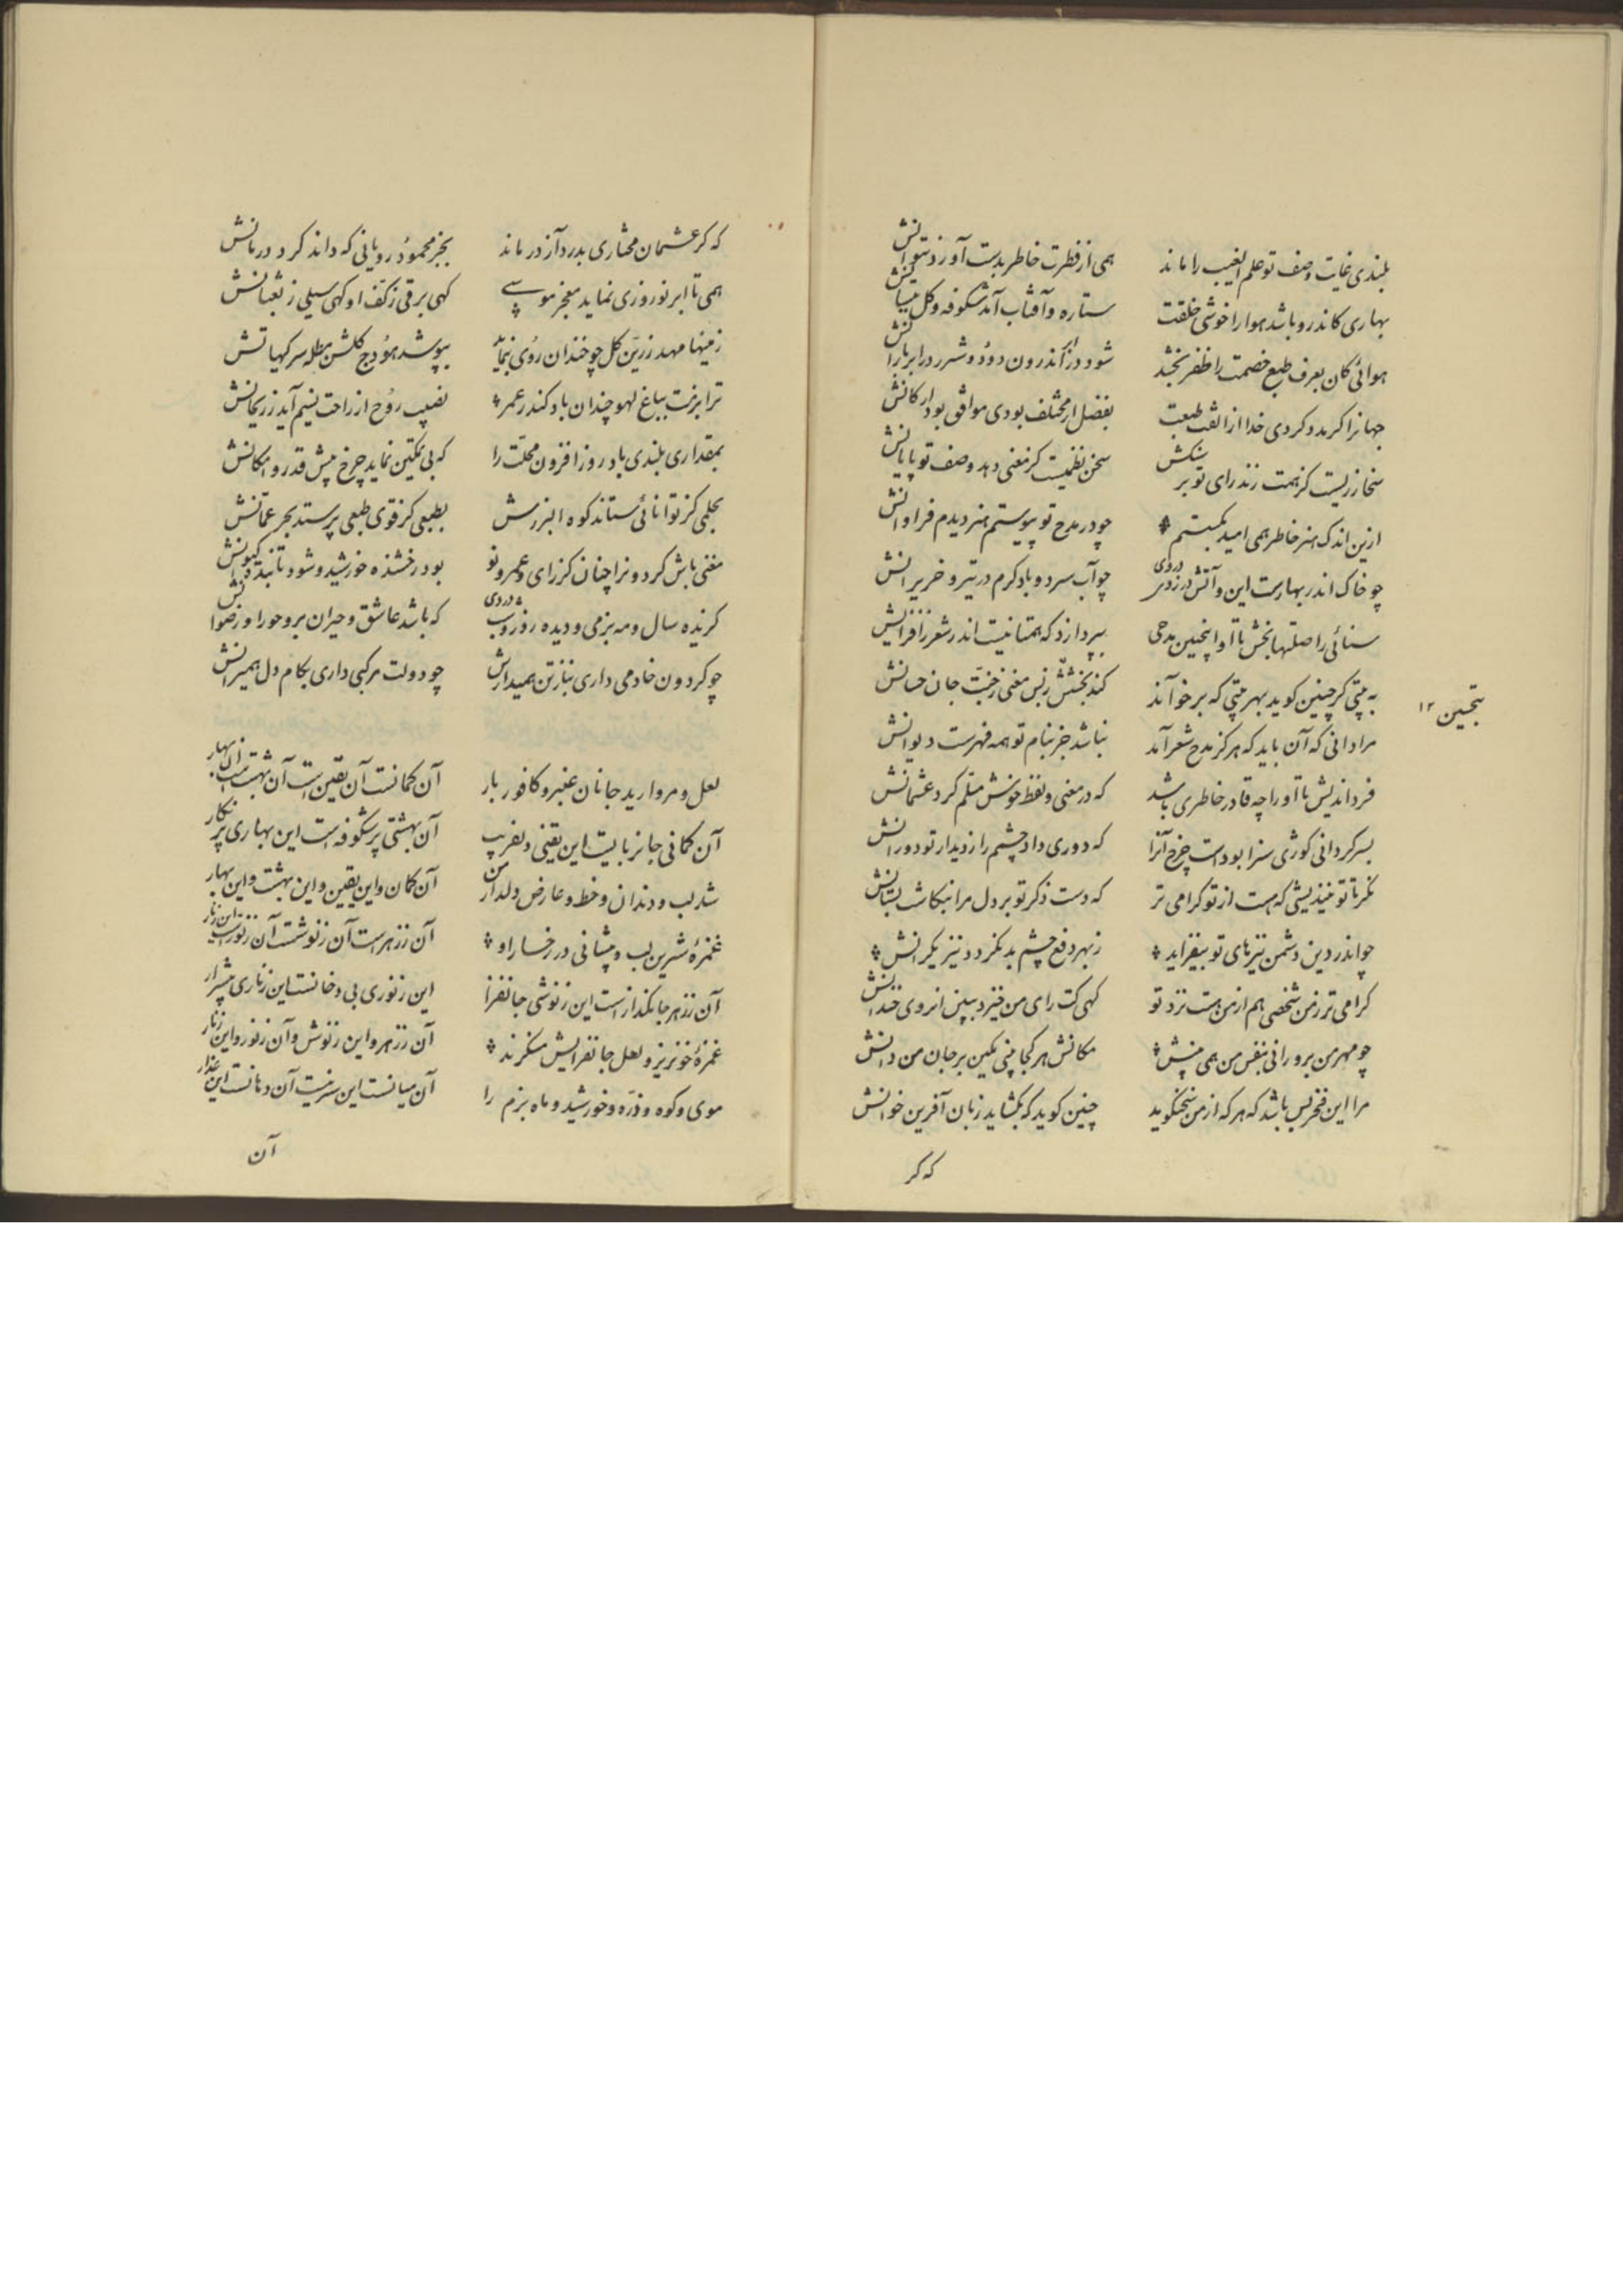 بلندی غایت وصف تو علم الغیب را ماند همی از فطرت خاطر بدست آورد نتوانش
بهاری کاندرو باشد هوا را خوشی خلقت ستاره و آفتاب آمد شکوفه و گل
هوائی کان بعرف طبع خصمت را ظفر بخشد شود در اندرون دود و شرر در ابر بارانش
جهانرا کر مدد کردی خدا از الفت طبعت بفضل ار مختلف بودی موافق بود ارکانش
سخا زریست کز همت زند رای تو بر سنکش سخن نظمیست کز معنی دهد وصف تو پایانش
ازین اندک هنر خاطر همی امید بکسستم چو در مدح تو پیوستم هنر دیدم فراوانش
چو خاک اندر بهارست این و آتش در چو آب سرد و باد کرم در تیر و خزیرانش
سنائی را صلتها بخش تا او اینچنین مدحی بپردازد که همتا نیست اندر شعر
به بیتی کر چنین کوید بهر بیتی که برخوانند کند بخشش معنی جان حسانش
تحسین ۱۲
مرا دانی که آن باید که هرکز مدح شعر آمد نباشد جز بنام تو همه فهرست دیوانش
فرد اندیش تا او را چه قادر خاطری باشد که در معنی و لفظ خوش مسلم کرد عثمانش
بسرکردانی کوژی سزا بودست چرخ آنرا که دوری داد چشمم را ز دیدار تو دورانش
نکر تا تو نیندیشی که هست از تو کرامی تر که دست ذکر تو بر دل مرا بنکاشت
چو اندر دین دشمن تیزهای تو بیفزاید ز بهر دفع چشم بد نکردد نیز یکرانش
کرامی تر ز من شخصی هم از من هست نزد تو کهی کت رای من خیزد ببین از روی
چو مهر من بر ورانی بنفس من همی بینش مکانش هر کجا بینی مکین بر جان من دانش
مرا این فخر بس باشد که هر که از من سخنکوید چنین کوید که بکشاید زبان آفرین خوانش
که کر
که کر عثمان مختاری بدرد آز در ماند بجز محمود رویانی که داند کرد درمانش
همی تا ابر نوروزی نماید معجز موسی کهی برقی ز کف او کهی سیلی ز ثعبانش
زمینها مهد زرین کل چو خندان روی بنماید بپوشد هودج کلشن
ترا بزمت بباغ لهو چندان باد کندر عمر نصیب روح از راحت نسیم آید ز ریحانش
بمقداری بلندی باد روز افزون محلت را که بی تمکین نماید چرخ پیش قدر و امکانش
بحلمی کز توانائی ستاند کوه البرزش بطبعی کز قوی طبعی پرستد بحر عمانش
چنان کز رای و عمر تو بود رخشنده خورشید و شود تابنده کیوانش
کزیده سال و مه بزمی و دیده روز و شب که باشد عاشق و حیران برو حورا و رضوانش
چو کردون خادمی داری بناز تن همیدارش چو دولت مرکبی داری بکام دل همیرانش
لعل و مروارید جانان عنبر و کافور بار آن کمانست آن یقین است آن بهشت آن بهار
آن کمانی جانرباییست این یقینی دلفریب آن بهشتی پر شکوفه است این بهاری پر نکار
شد لب و دندان و خط و عارض دلدار من آن کمان و این یقین و این بهشت و این بهار
غمزهٔ شیرین لب و پیشانی در رخسار او آن ز زهر است آن ز نوشت آن ز نور است این ز نار
آن ز زهر جانکداز است این ز نوشی جانفزا این ز نوری بی دخانست این ز ناری بیشرار
غمزهٔ خونریز و لعل جانفزایش منکرند آن ز زهر و این ز نوش و آن ز نور و این ز نار
موی و کوه و ذره و خورشید و ماه بزم را آن میانست این سرینست آن دهانست این عذار
آن